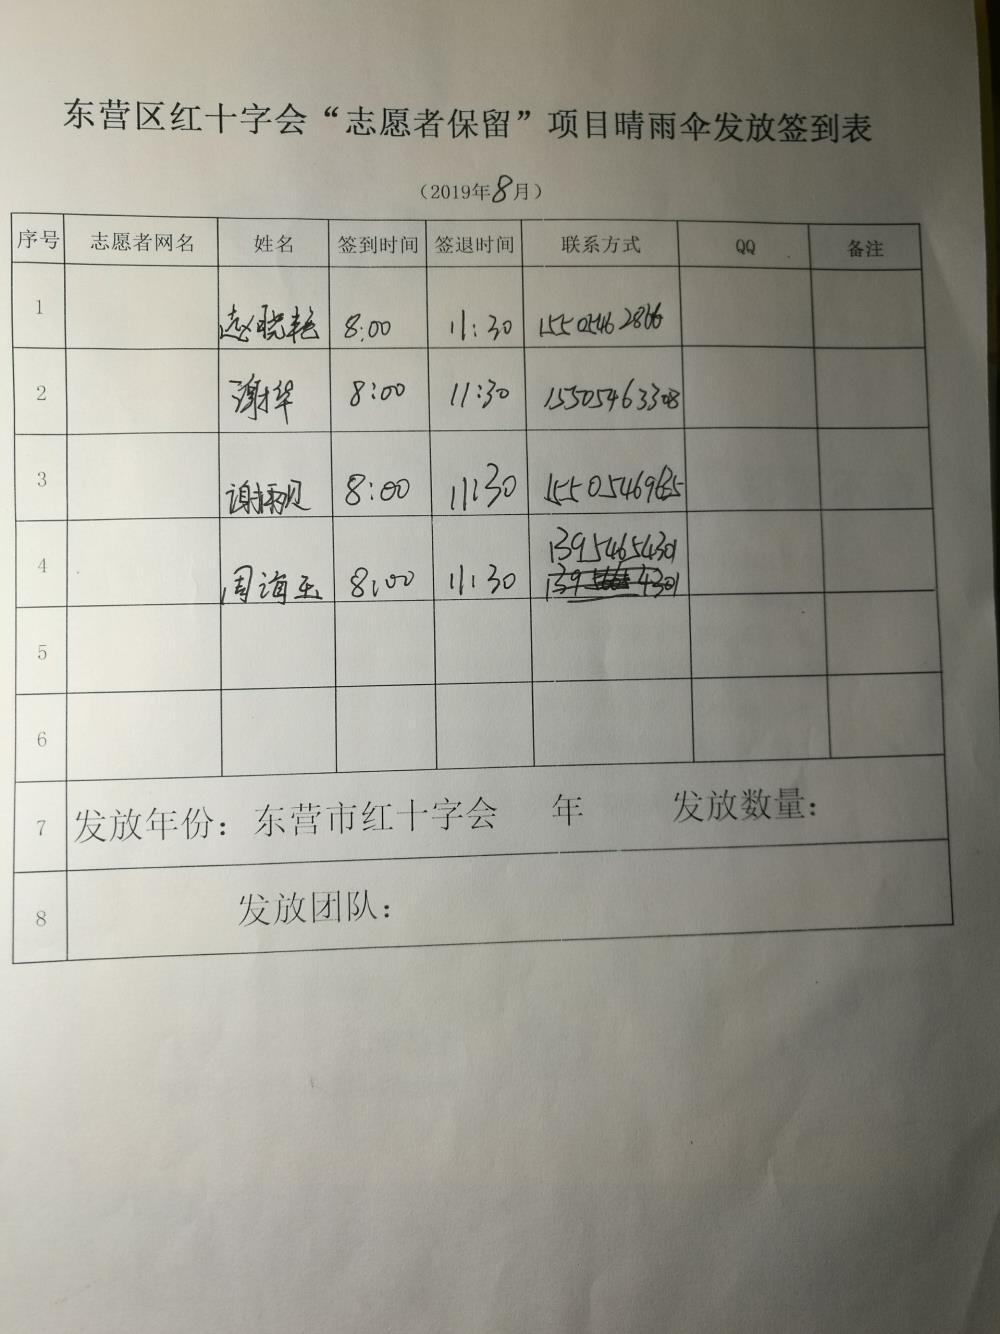 东营区红十字会“志愿者保留”项目晴雨伞发放签到表
（2019年8月）
序号 志愿者网名 姓名 签到时间 签退时间 联系方式 QQ 备注
1 赵晓艳 8:00 11:30 15505462866
2 谢华 8:00 11:30 15505463308
3 8:00 11:30
13954654301
4 周海玉 8:00 11:30
5
6
7 发放年份：东营市红十字会 年 发放数量：
8 发放团队：